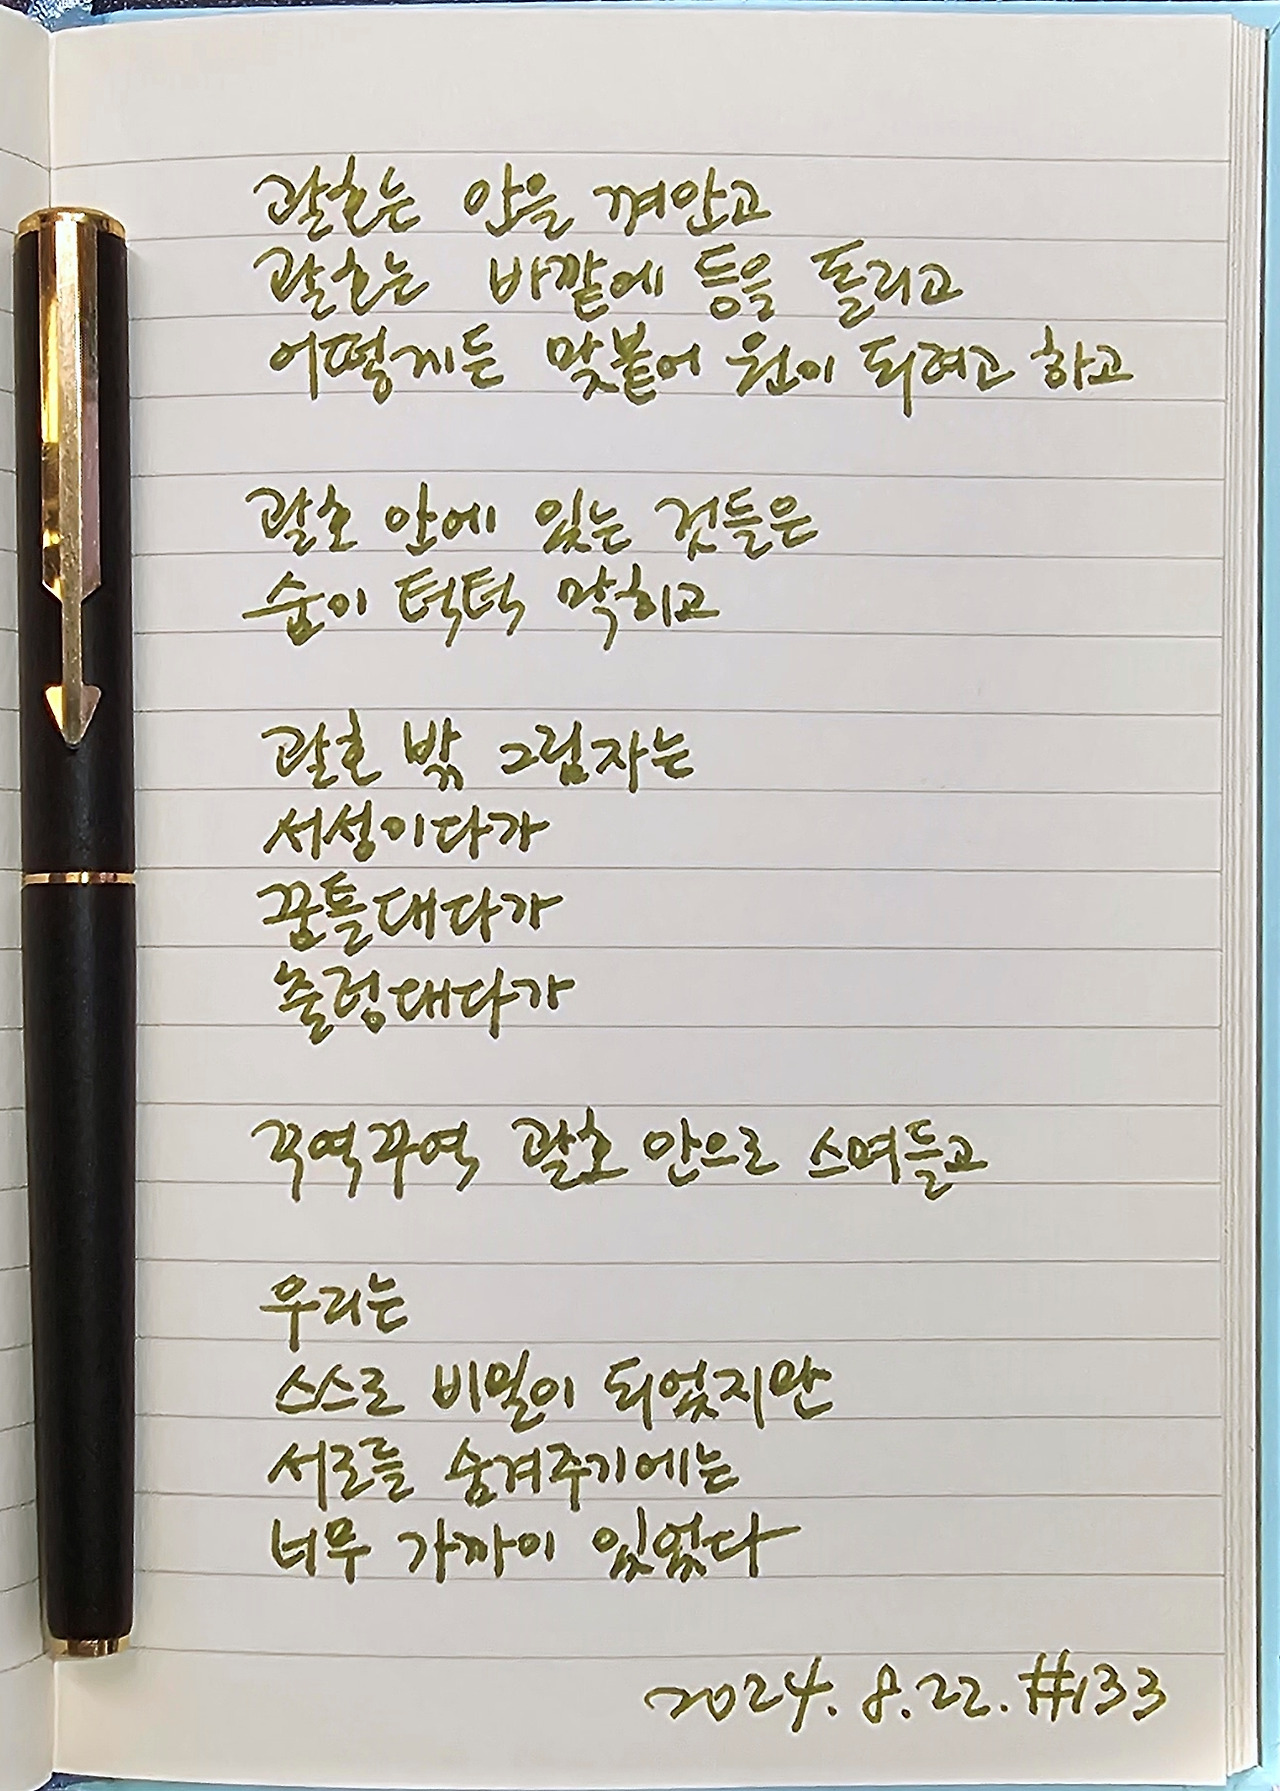 괄호는 안을 껴안고
괄호는 바깥에 등을 돌리고
어떻게든 맞붙어 원이 되려고 하고
괄호 안에 있는 것들은
숨이 턱턱 막히고
괄호 밖 그림자는
서성이다가
꿍틀대다가
출렁대다가
꾸역꾸역 괄호 안으로 스며들고
우리는
스스로 비밀이 되었지만
서로를 숨겨주기에는
너무 가까이 있었다
2024. 8. 22. #133